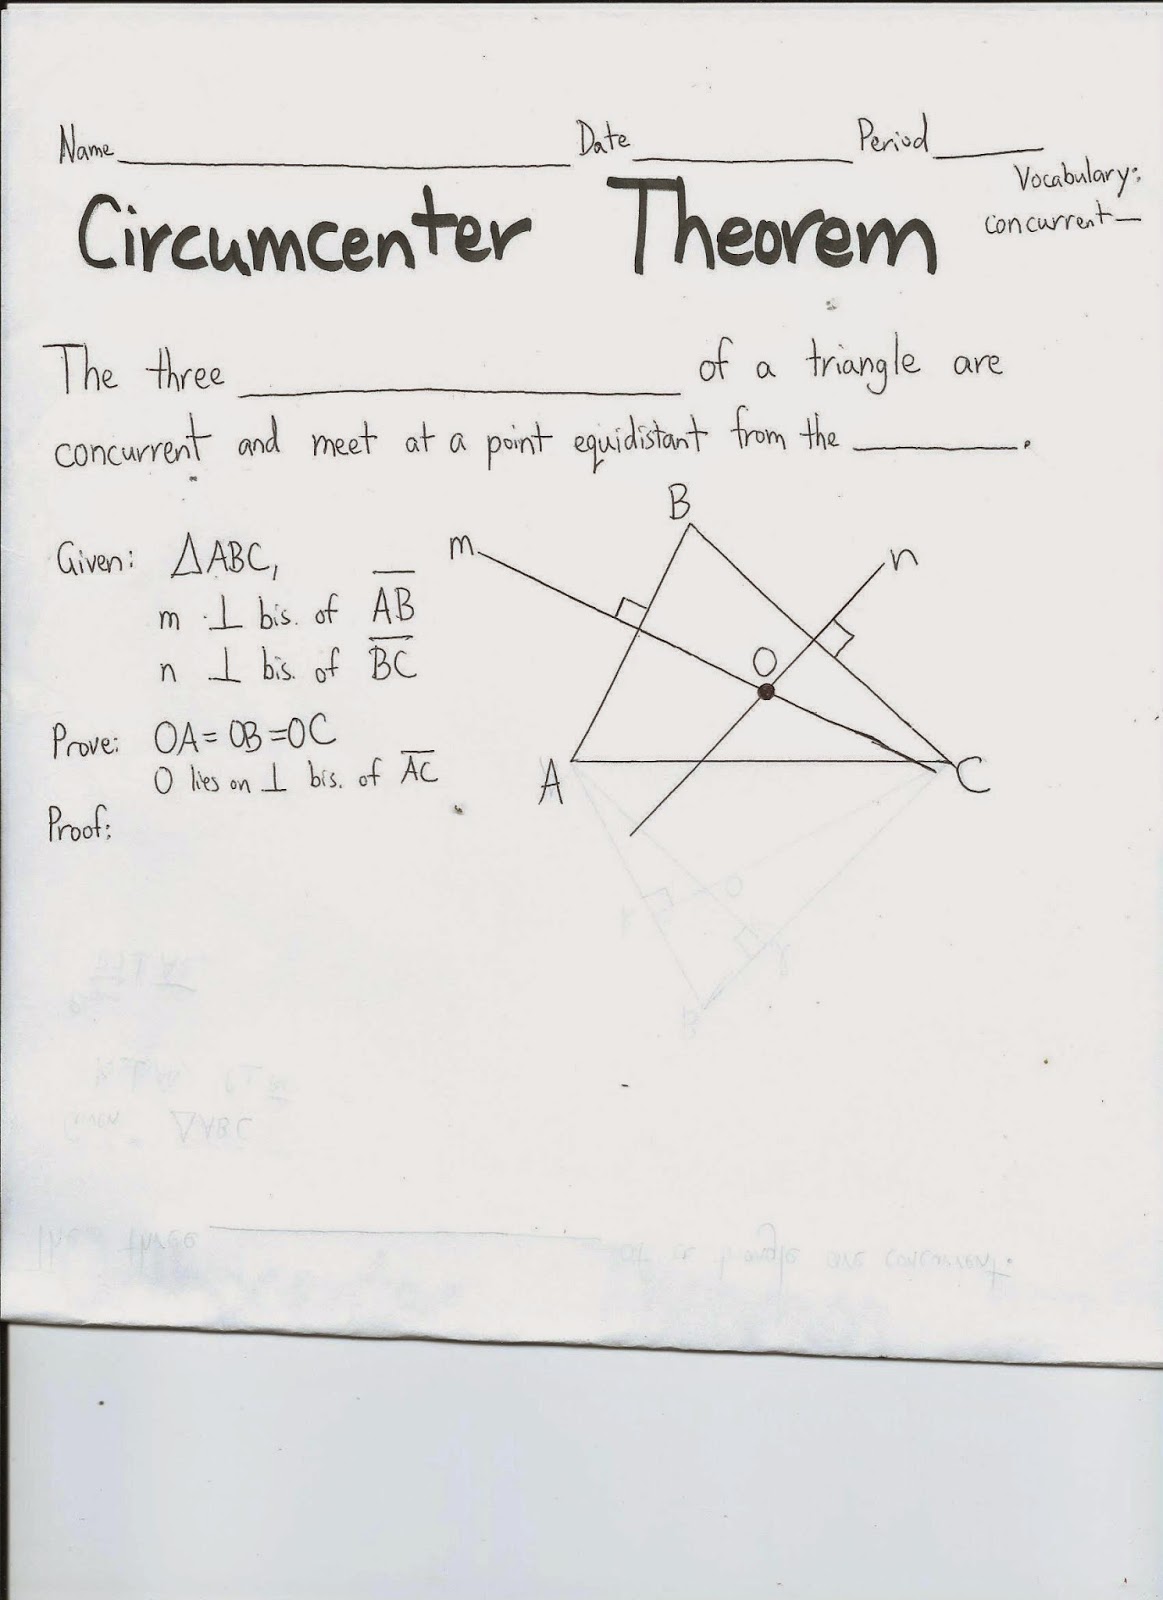 Name_____ Date_____ Period_____
Vocabulary:
concurrent—
Circumcenter Theorem
The three _____ of a triangle are
concurrent and meet at a point equidistant from the _____.
Given: △ABC,
m ⊥ bis. of AB
n ⊥ bis. of BC
Prove: OA = OB = OC
O lies on ⊥ bis. of AC
Proof:
B
m
n
O
A
C
△ABC
The three _____ of a triangle are concurrent.